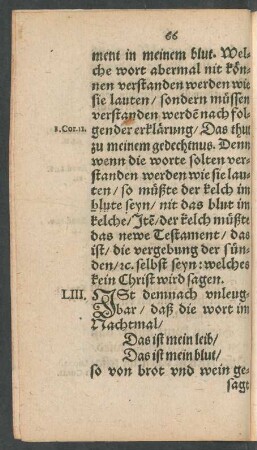 66
ment in meinem blut. Wel-
che wort abermal nit kön-
nen verstanden werden wie
sie lauten / sondern müssen
verstanden werdē nach fol-
1. Cor. 11. gender erklärung / Das thut
zu meinem gedechtnus. Denn
wenn die worte solten ver-
standen werden wie sie lau-
ten / so müßte der kelch im
blute seyn / nit das blut im
kelche / Itē / der kelch müßte
das newe Testament / das
ist / die vergebung der sün-
den / ꝛc. selbst seyn: welches
kein Christ wird sagen.
LIII. ISt demnach vnleug-
bar / daß die wort im
Nachtmal /
Das ist mein leib /
Das ist mein blut /
so von brot vnd wein ge-
sagt